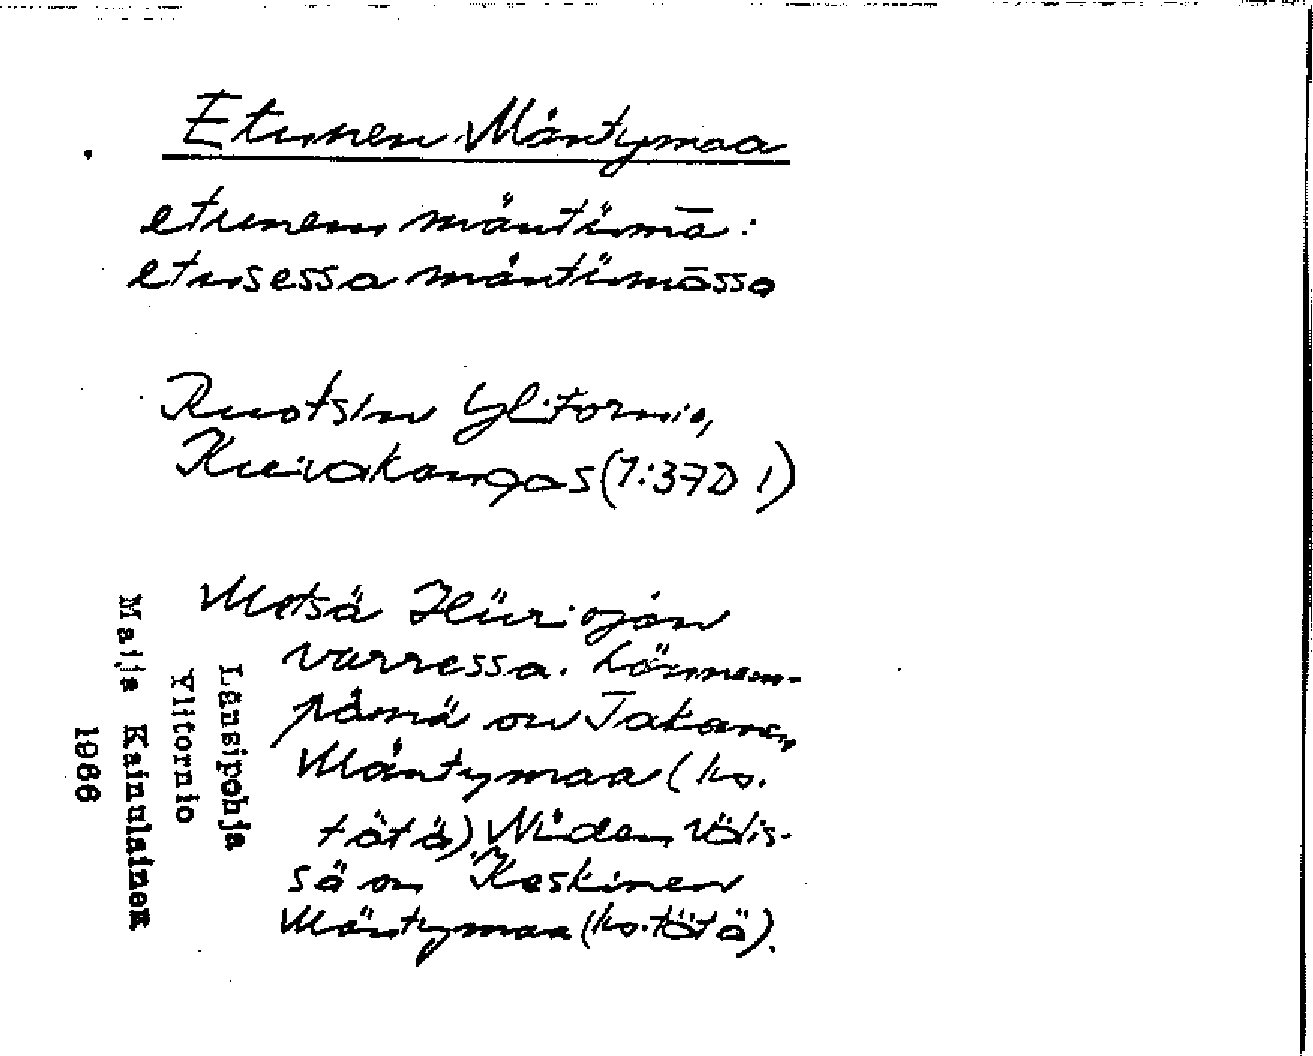 Etunen Mäntymaa
etunem mäntümā:
etusessa mäntümāssa
Ruotsin Ylitornio,
Kuivakangas (7:37D 1)
Metsä Hiiriojan
varressa. Lännem-
pänä on Takanen
Mäntymaa (ks.
tätä). Niiden välis-
sä on Keskinen
Mäntymaa (ks. tätä).
Länsipohja
Ylitornio
Maija Kainulainen
1966